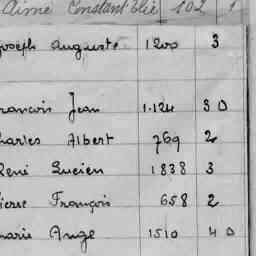 Aimé Constant Élie 102 1
Joseph Auguste 1200 3
François Jean 1.124 30
Charles Albert 769 2
René Lucien 1838 3
Pierre François 658 2
Marie Ange 1510 40